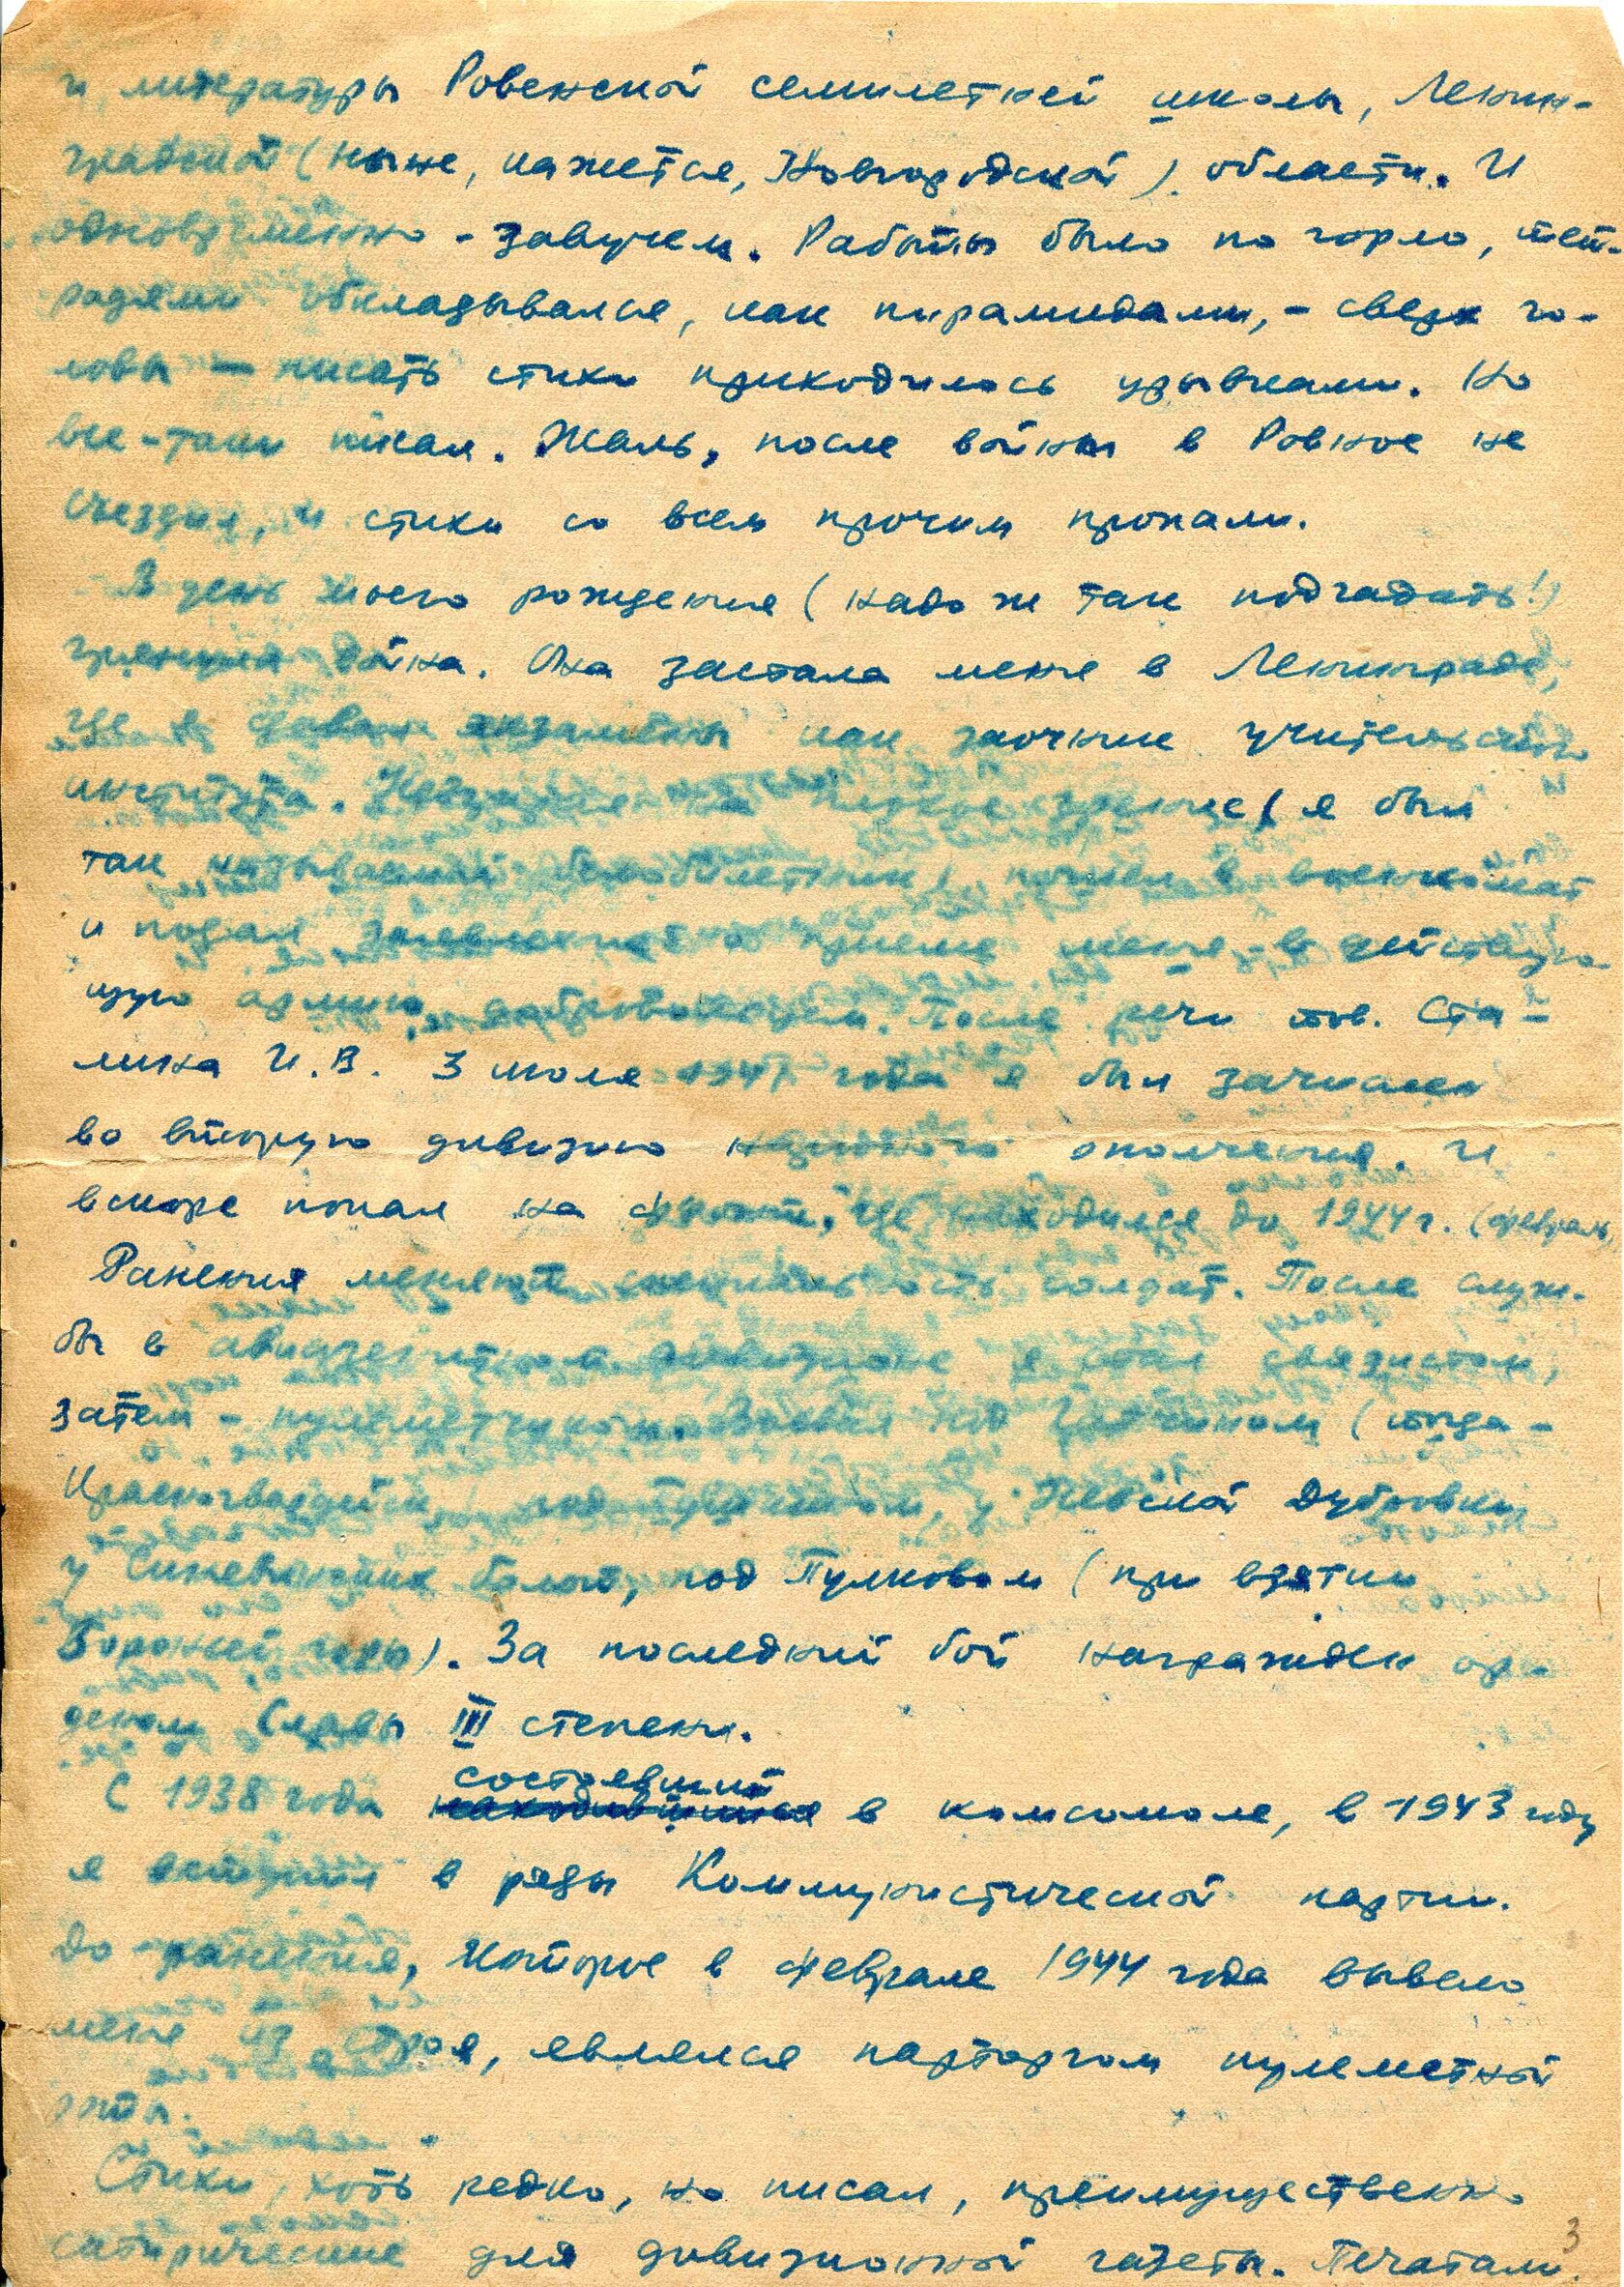 и литературы Ровенской семилетней школы, Ленин-
градской (ныне, кажется, Новгородской) области. И
одновременно - завучем. Работы было по горло, тет-
радями обкладывался, как пирамидами, - сверх го-
ловы — писать стихи приходилось урывками. Но
все-таки писал. Жаль, после войны в Ровное не
съездил, и стихи со всем прочим пропали.
В день моего рождения (надо ж так подгадать!)
грянула война. Она застала меня в Ленинграде,
где я сдавал экзамены как заочник учительского
института. Невзирая на плохое зрение (я был
так называемый белобилетник) пошел в военкомат
и подал заявление о приеме меня в действую-
щую армию добровольцем. После речи тов. Ста-
лина И.В. 3 июля 1941 года я был зачислен
во вторую дивизию народного ополчения. И
вскоре попал на фронт, где находился до 1944 г. (февраль)
Ранения меняют специальность солдат. После служ-
бы в артдивизионе я стал связистом,
затем - пулеметчиком. Воевал под Гатчиной (тогда -
Красногвардейск), под Пушкином, у Невской Дубровки,
у Синявинских болот, под Пулковом (при взятии
Вороньей горы). За последний бой награжден ор-
деном Славы III степени.
состоявший
С 1938 года находившийся в комсомоле, в 1943 году
я вступил в ряды Коммунистической партии.
До ранения, которое в феврале 1944 года вывело
меня из строя, являлся парторгом пулеметной
роты.
Стихи, хоть редко, но писал, преимущественно
сатирические для дивизионной газеты. Печатали.
3